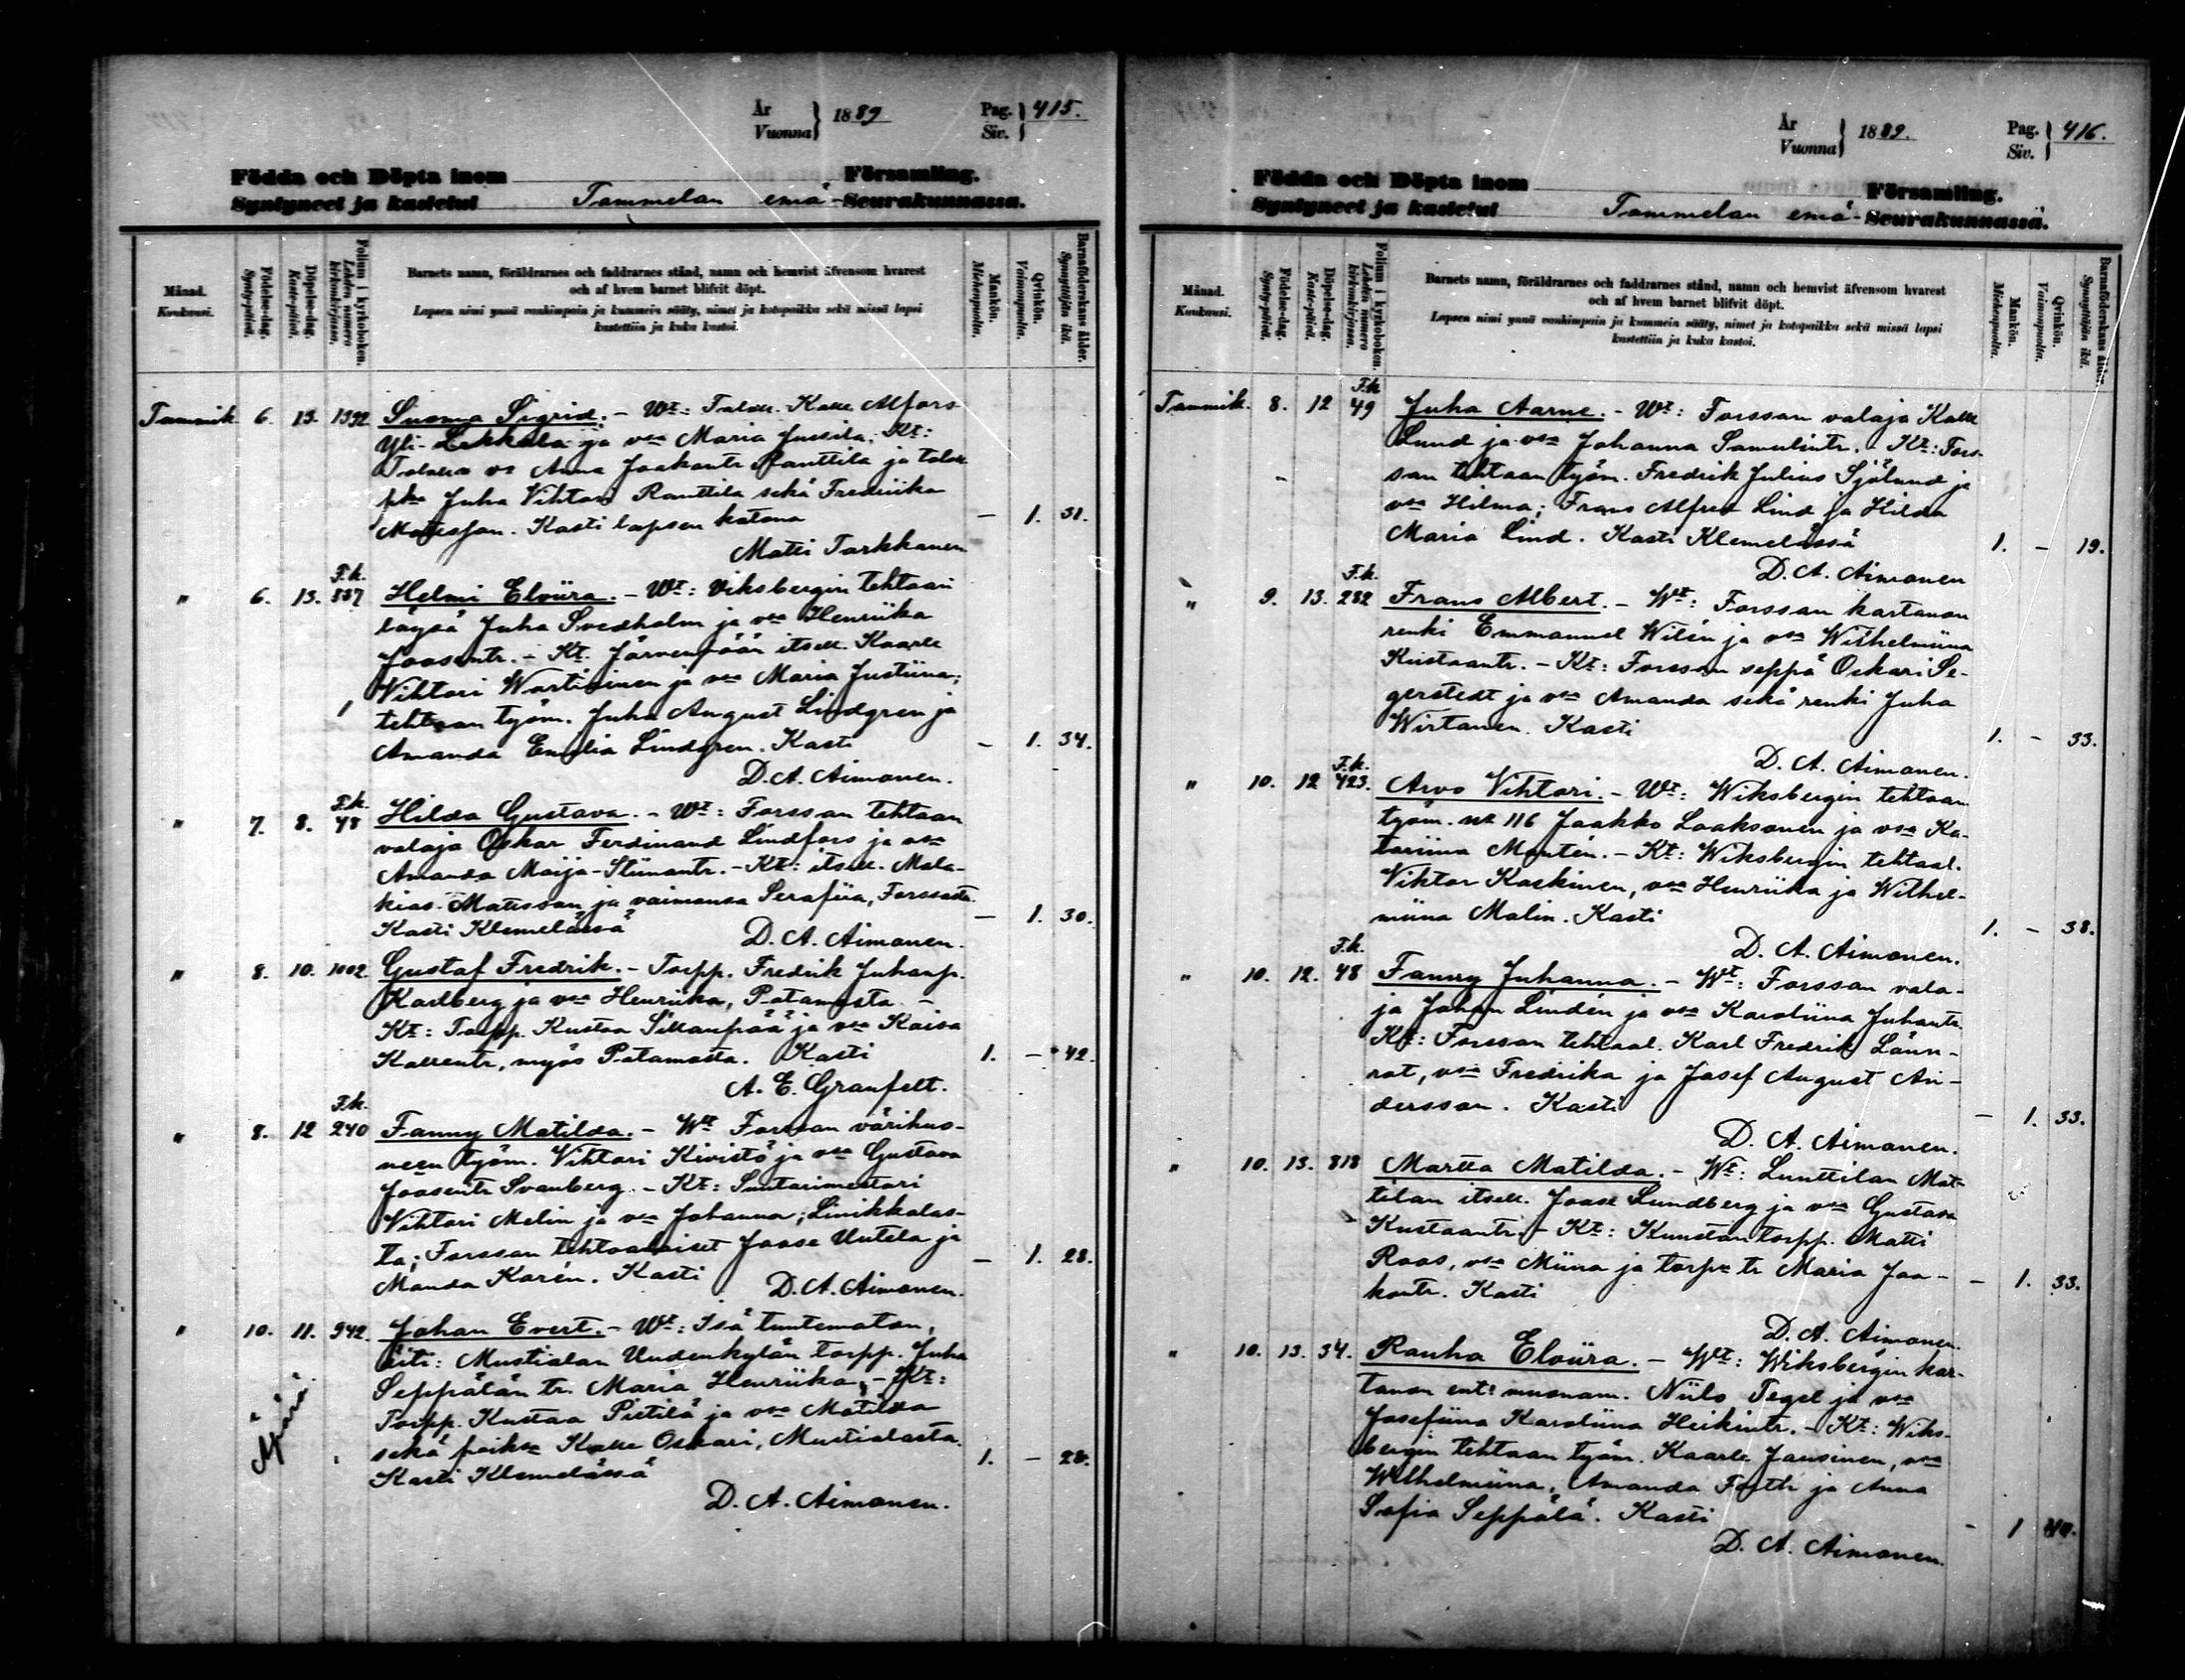 År
Vuonna } 1889
Pag.
Siv. } 415.
Födda och Döpta inom Församling.
Syntyneet ja kastetut Tammelan emä-Seurakunnassa.
Månad.
Kuukausi.
Födelse-dag.
Synty-päivä.
Döpelse-dag.
Kaste-päivä.
Folium i kyrkoboken.
Lehden numero kirkonkirjassa.
Barnets namn, föräldrarnes och faddrarnes stånd, namn och hemvist äfvensom hvarest
och af hvem barnet blifvit döpt.
Lapsen nimi ynnä vanhimpain ja kummein sääty, nimet ja kotopaikka sekä missä lapsi
kastettiin ja kuka kastoi.
Mankön.
Miehenpuolta.
Qvinkön.
Vaimonpuolta.
Barnaföderskans ålder.
Synnyttäjän ikä.
Tammik. 6. 13. 1392 Suoma Sigrid. - Wt: Talok. Kalle Alfors
Yli-Lekkala ja vva Maria Jussila; Kt:
Anna Jaakontr. Ranttila ja talok.
Juha Vihtori Ranttila sekä Fredriika
Matisson. Kasti lapsen kotona - 1. 31.
Matti Tarkkanen
F.k.
" 6. 13. 537 Helmi Elviira. - Wt: Viksbergin tehtaan
Juha Svedholm ja vva Henriika
Joosentr. - Kt. Järvenpään itsell. Kaarle
Vihtori Wartiainen ja vva Maria Justiina;
tehtaan työm. Juha August Lindgren ja
Amanda Emilia Lindgren. Kasti - 1. 34.
D. A. Aimonen.
F.k.
" 7. 8. 48 Hilda Gustava. - Wt: Forssan tehtaan
valaja Oskar Ferdinand Lindfors ja vva
Amanda Maija-Stiinantr. - Kt: itsell. Mala-
kias Matisson ja vaimonsa Serafiia, Forssasta.
Kasti Klemelässä - 1. 30.
D. A. Aimonen.
" 8. 10. 1002 Gustaf Fredrik. - Torpp. Fredrik Juhanp.
Karlberg ja vva Henriika, Patamosta. -
Kt: Torpp. Kustaa Sillanpää ja vva Kaisa
Kallentr., myös Patamosta. Kasti 1. - 42.
A. E. Granfelt.
F.k.
" 8. 12 240 Fanny Matilda. - Wt Forssan värihuo-
neen työm. Vihtori Kivistö ja vva Gustava
Joosentr Svanberg. - Kt: Suutarimestari
Vihtori Melin ja vva Johanna, Linikkalas-
ta; Forssan tehtaalaiset Joose Uutela ja
Manda Karén. Kasti - 1. 28.
D. A. Aimonen.
" 10. 11. 942. Johan Evert. - Wt: Isä tuntematon,
äiti: Mustialan Uudenkylän torpp. Juha
Seppälän tr. Maria Henriika. - Kt:
Torpp. Kustaa Pietilä ja vva Matilda
sekä Kalle Oskari, Mustialasta.
Kasti Klemelässä 1. - 28.
Äpärä
D. A. Aimonen.
År
Vuonna } 1889.
Pag.
Siv. } 416.
Födda och Döpta inom Församling.
Syntyneet ja kastetut Tammelan emä-Seurakunnassa.
Månad.
Kuukausi.
Födelse-dag.
Synty-päivä.
Döpelse-dag.
Kaste-päivä.
Folium i kyrkoboken.
Lehden numero kirkonkirjassa.
Barnets namn, föräldrarnes och faddrarnes stånd, namn och hemvist äfvensom hvarest
och af hvem barnet blifvit döpt.
Lapsen nimi ynnä vanhimpain ja kummein sääty, nimet ja kotopaikka sekä missä lapsi
kastettiin ja kuka kastoi.
Mankön.
Miehenpuolta.
Qvinkön.
Vaimonpuolta.
Barnaföderskans ålder.
Synnyttäjän ikä.
F.k.
Tammik. 8. 12 49 Juha Aarne. - Wt: Forssan valaja Kalle
Lund ja vva Johanna Samulintr. - Kt: Fors-
san tehtaan työm. Fredrik Julius Sjölund ja
vva Hilma; Frans Alfred Lind ja Hilda
Maria Lind. Kasti Klemelässä 1. - 19.
D. A. Aimonen
F.k.
" 9. 13. 282 Frans Albert. - Wt: Forssan kartanon
renki Emmanuel Wilén ja vva Wilhelmiina
Kustaantr. - Kt: Forssan seppä Oskari Se-
gerstedt ja vva Amanda sekä renki Juha
Wirtanen. Kasti 1. - 33.
D. A. Aimonen.
F.k.
" 10. 12 423. Arvo Vihtori. - Wt: Wiksbergin tehtaan
työm. No 116 Jaakko Laaksonen ja vva Ka-
tariina Montén. - Kt: Wiksbergin tehtaal.
Viktor Kaskinen, vva Henriika ja Wilhel-
miina Malin. Kasti 1. - 38.
D. A. Aimonen.
F.k.
" 10. 12. 48 Fanny Juhanna. - Wt: Forssan vala-
ja Johan Lindén ja vva Karoliina Juhantr.
Kt: Forssan tehtaal. Karl Fredrik Länn-
rot, vva Fredrika ja Josef August An-
dersson. Kasti - 1. 33.
D. A. Aimonen.
" 10. 13. 818 Martta Matilda. - Wt: Lunttilan Mat-
tilan itsell. Joose Lundberg ja vva Gustava
Kustaantr. - Kt: Kuustan torpp. Matti
Raas, vva Miina ja torp. tr Maria Jaa-
kontr. Kasti - 1. 33.
D. A. Aimonen.
" 10. 13. 34. Rauha Elviira. - Wt: Wiksbergin kar-
tanon ent. Niilo Tegel ja vva
Josefiina Karoliina Heikintr. - Kt: Wiks-
bergin tehtaan työm. Kaarle Jansinen, vva
Wilhelmiina, Amanda Forth ja Anna
Sofia Seppälä. Kasti - 1
D. A. Aimonen.